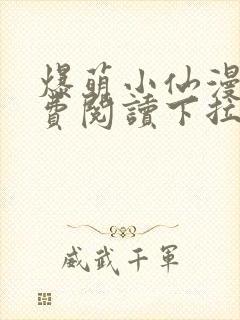 爆萌小仙漫
費閱讀下拉
威武千軍